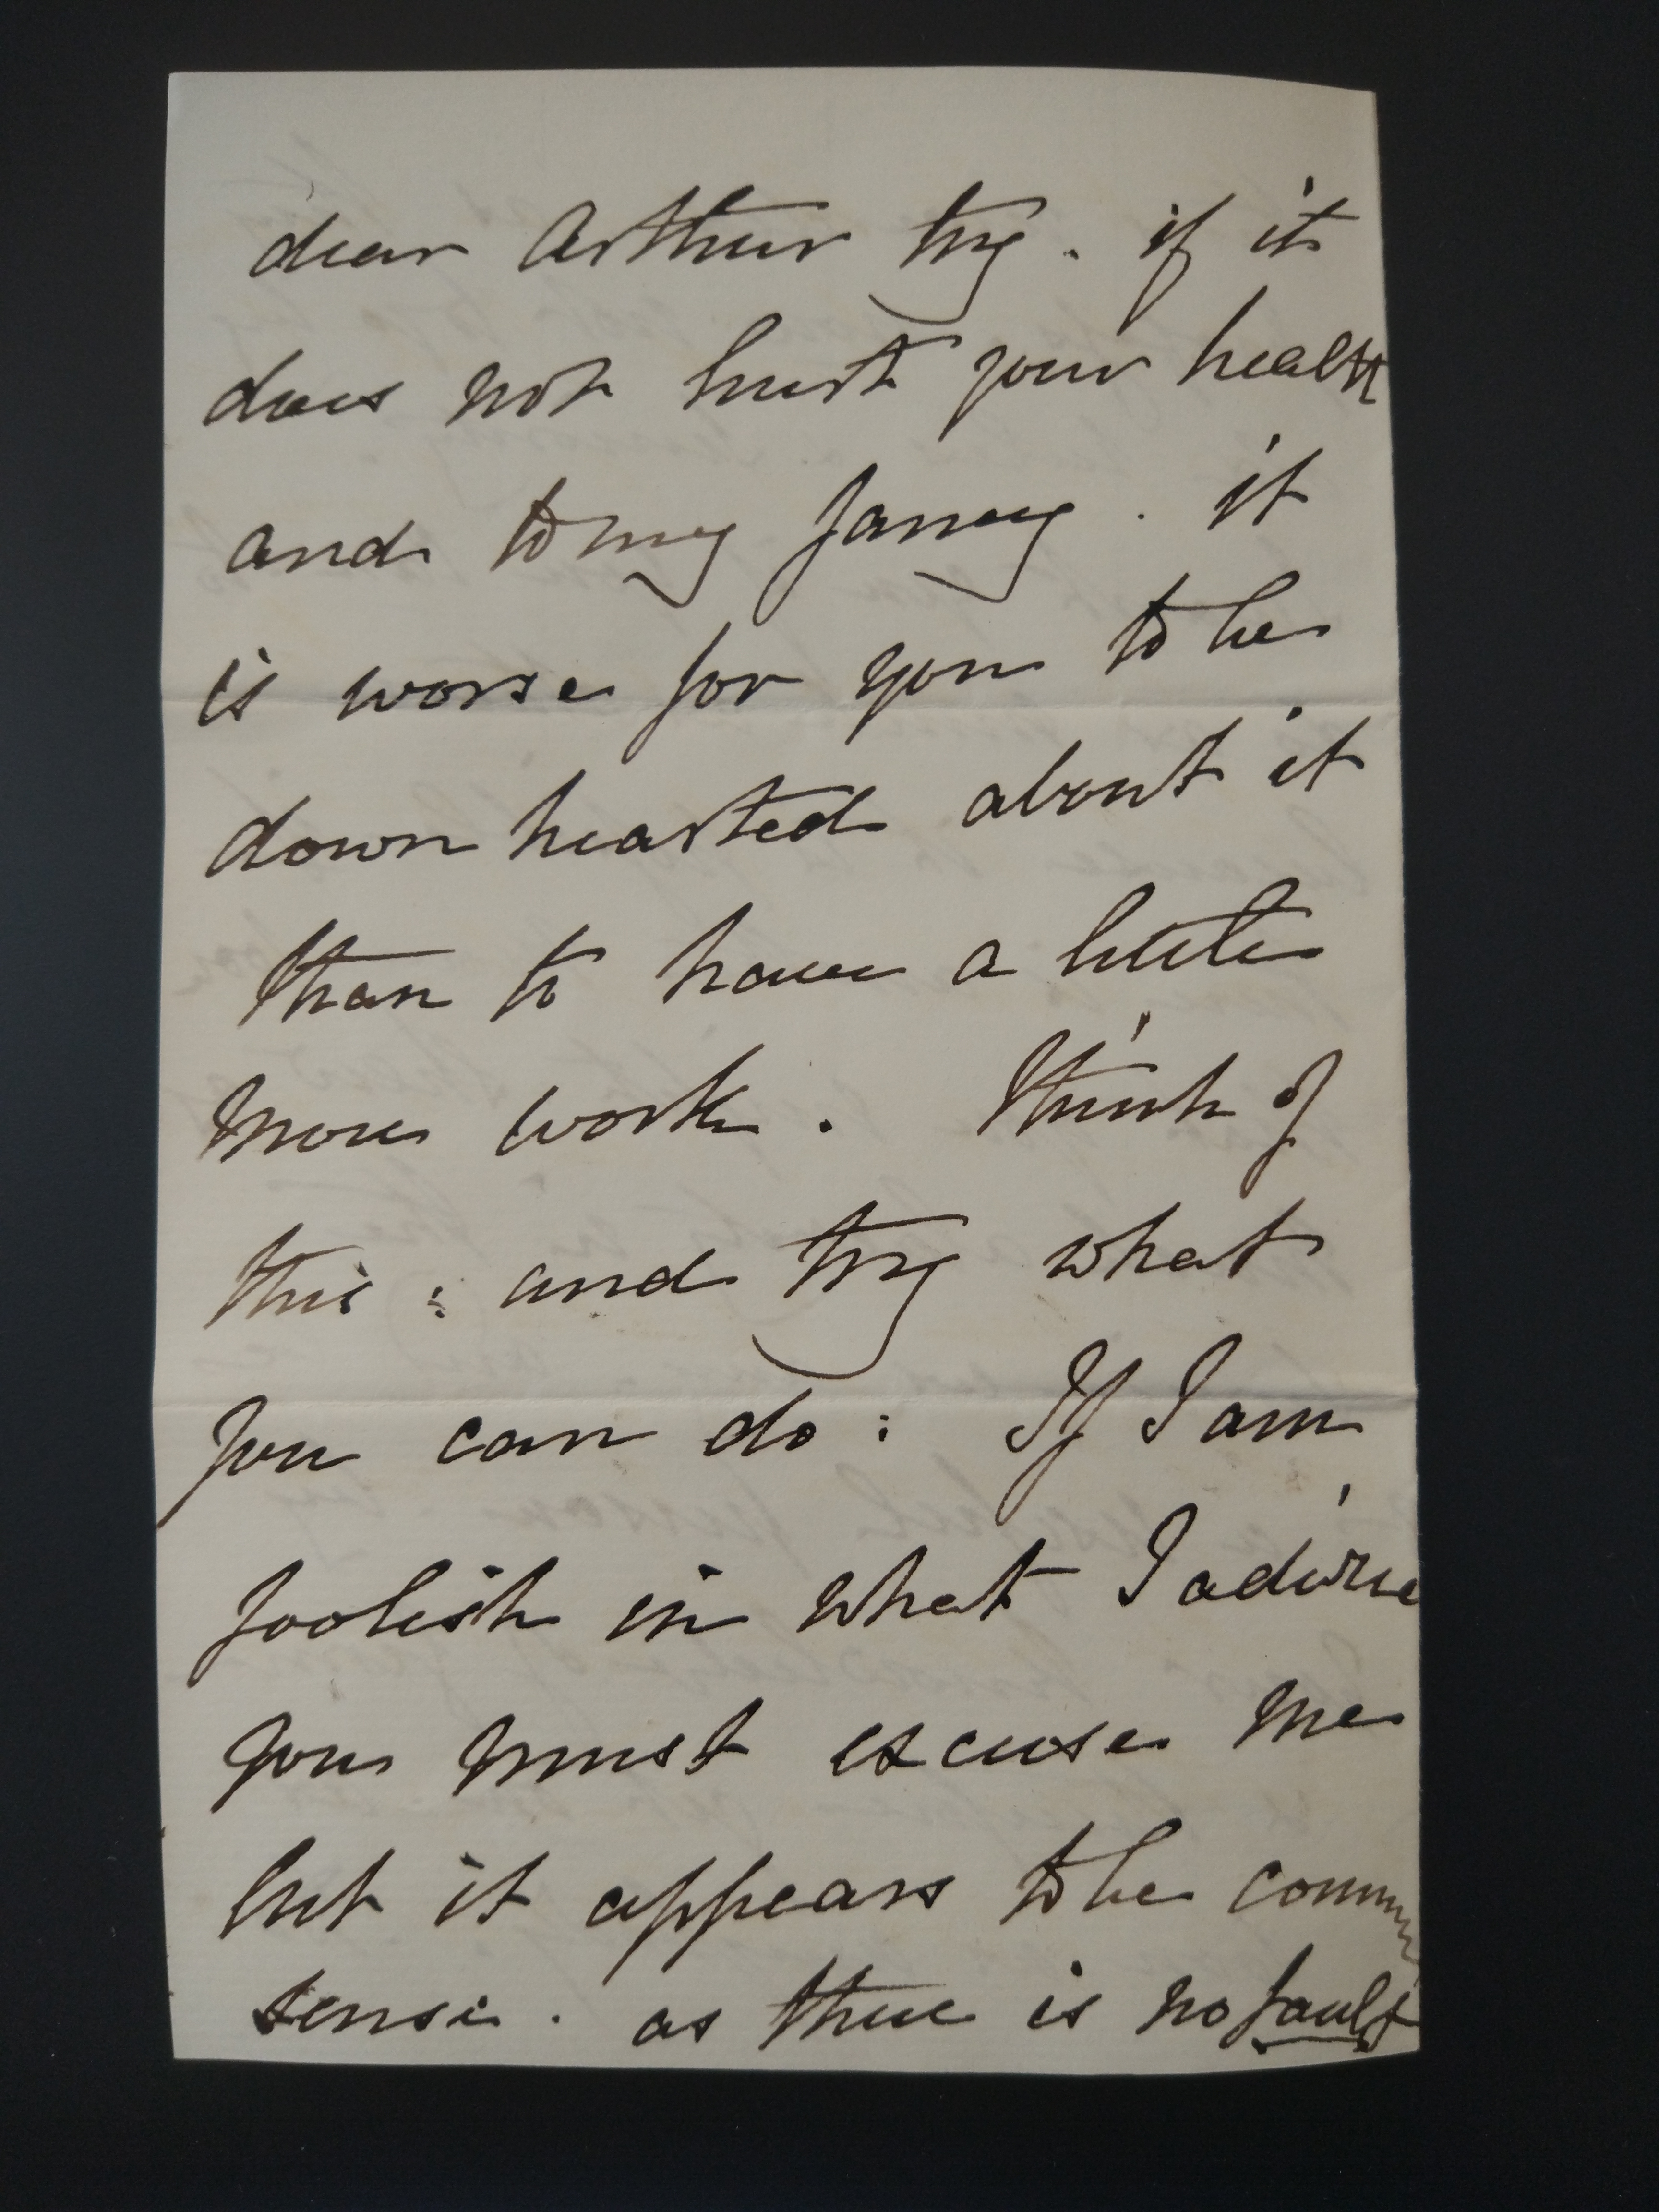 dear Arthur try. if it
does not hurt your health
and to my fancy. it
is worse for you to be
down hearted about it
than to have a little
more work. Think of
this: and try what
you can do: If I am
foolish in what I advise
you must excuse me
but it appears to be common
sense. as there is no fault